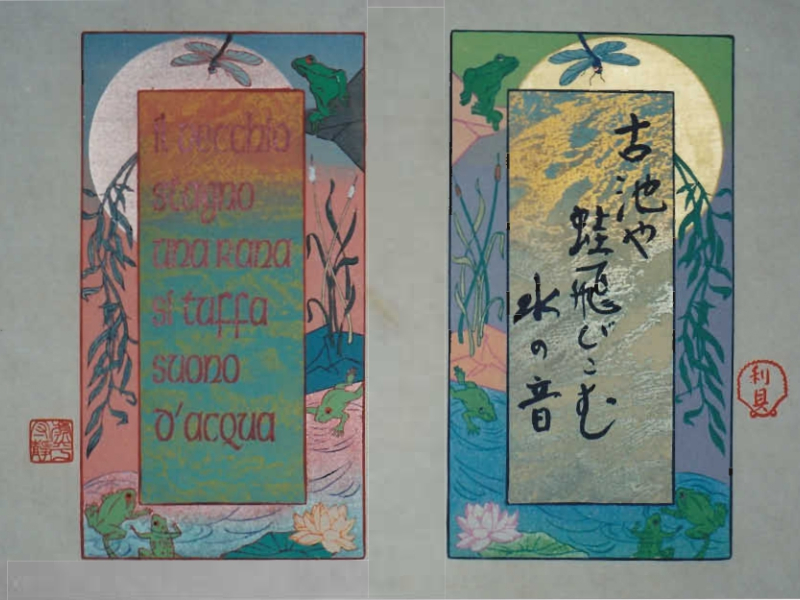 il vecchio
stagno
una rana
si tuffa
suono
d'acqua
古池や
蛙飛びこむ
水の音
利貝